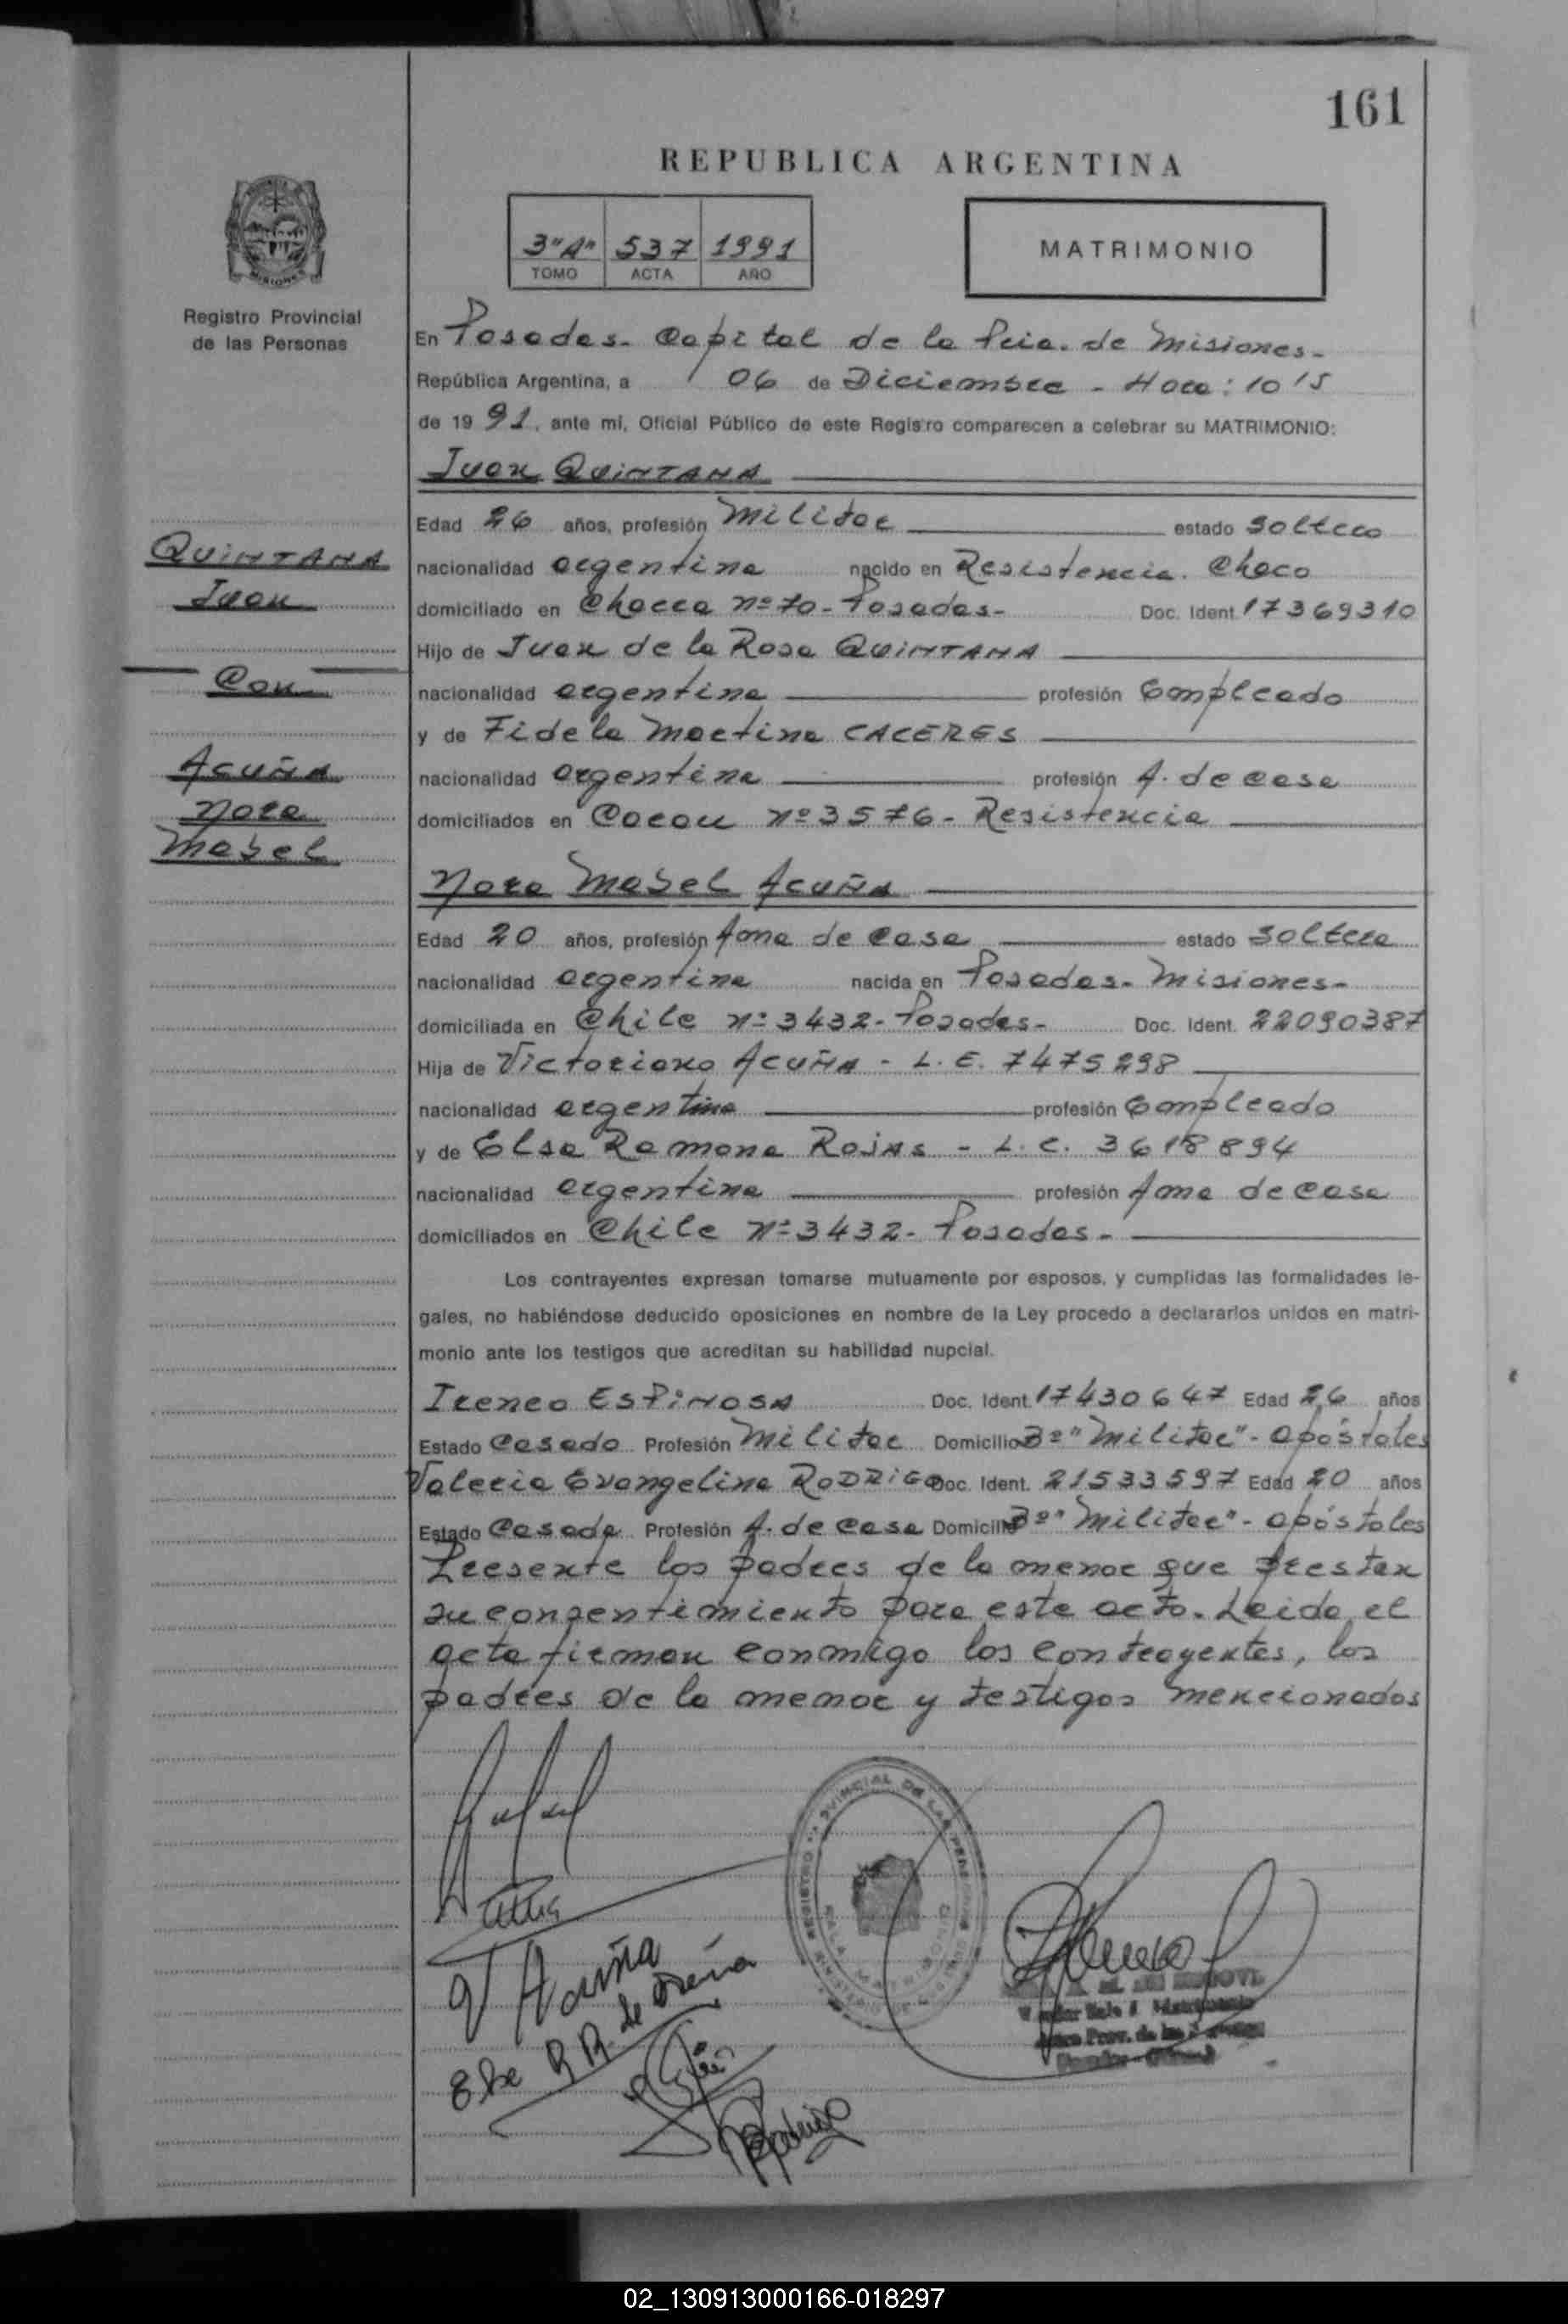 161
REPUBLICA ARGENTINA
3"A" 537 1991
TOMO ACTA AÑO
MATRIMONIO
MISIONES
Registro Provincial
de las Personas
En Posadas- Capital de la Pcia. de Misiones-
República Argentina, a 06 de Diciembre - Hora: 10 15
de 19 91, ante mí, Oficial Público de este Registro comparecen a celebrar su MATRIMONIO:
Juan QUINTANA
Edad 26 años, profesión Militar estado soltero
QUINTANA
Juan
Con
ACUÑA
Nora
Mabel
nacionalidad argentina nacido en Resistencia. Chaco
domiciliado en Nº 70- Posadas- Doc. Ident. 17369310
Hijo de Juan de la Rosa QUINTANA
nacionalidad argentina profesión Empleado
y de Fidela Martina CACERES
nacionalidad argentina profesión A. de casa
domiciliados en Nº 3576- Resistencia
Nora Mabel ACUÑA
Edad 20 años, profesión Ama de casa estado soltera
nacionalidad argentina nacida en Posadas- Misiones-
domiciliada en Chile Nº 3432- Posadas- Doc. Ident. 22090387
Hija de Victoriano ACUÑA - L.E. 7475298
nacionalidad argentina profesión Empleado
y de Elsa Ramona ROJAS - L.C. 3618894
nacionalidad argentina profesión Ama de casa
domiciliados en Chile Nº 3432- Posadas-
Los contrayentes expresan tomarse mutuamente por esposos, y cumplidas las formalidades le-
gales, no habiéndose deducido oposiciones en nombre de la Ley procedo a declararlos unidos en matri-
monio ante los testigos que acreditan su habilidad nupcial.
Ireneo ESPINOSA Doc. Ident. 17430647 Edad 26 años
Estado Casado Profesión Militar Domicilio Bº "Militar"- Apóstoles
Valeria Evangelina RODRIGO Doc. Ident. 21533597 Edad 20 años
Estado Casada Profesión A. de casa Domicilio Bº "Militar"- Apóstoles
Presente los padres de la menor que prestan
su consentimiento para este acto. Leida el
acta firman conmigo los contrayentes, los
padres de la menor y testigos mencionados
V Acuña
Rodrigo
02_130913000166-018297